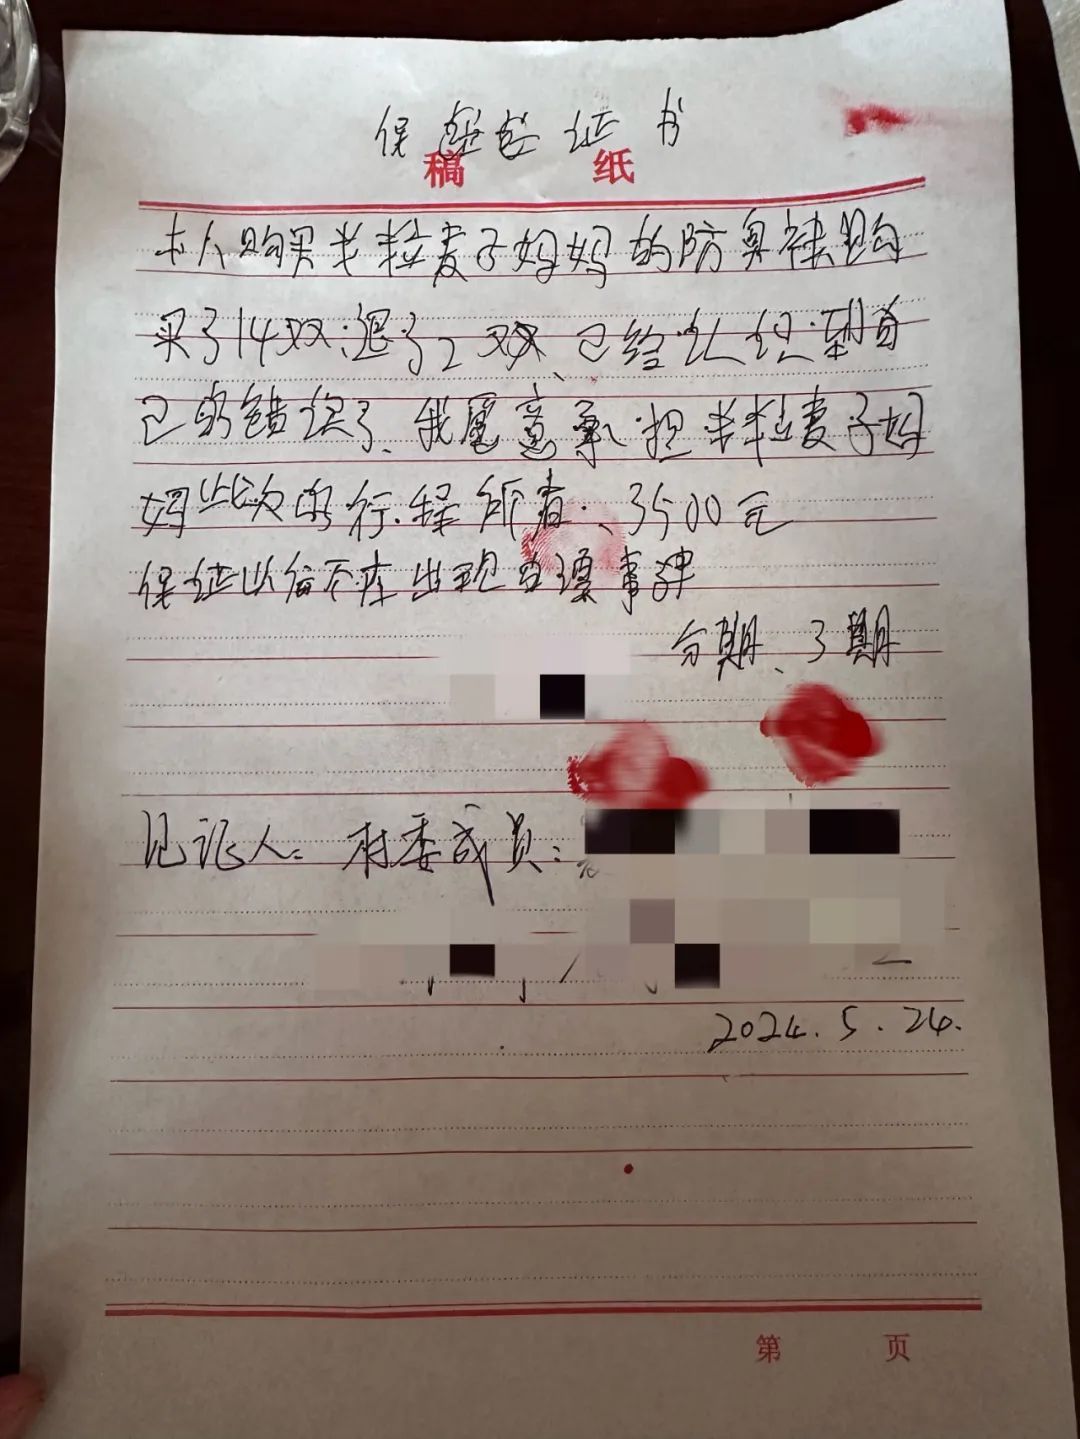 保证书
稿 纸
本人购买半粒麦子妈妈的防臭袜购
买了14双退了2双、已经认识到自
己的错误了、我愿意承担半粒麦子妈
妈此次的行程所有、3500元
保证以后不在出现自理事件
分期、3期
见证人: 村委成员:
2024.5.24.
第 页